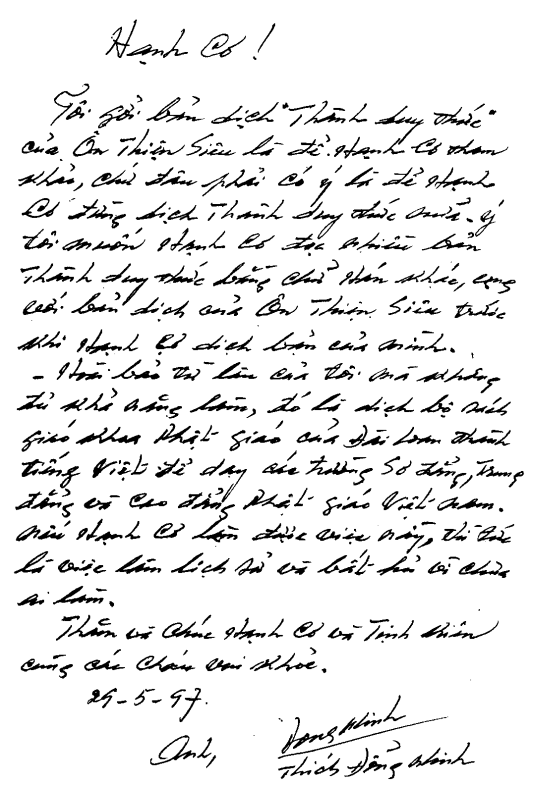 Hạnh Cơ !
Tôi gởi bản dịch "Thành duy thức"
của Ôn Thiện Siêu là để Hạnh Cơ tham
khảo, chứ đâu phải có ý là để Hạnh
Cơ đừng dịch Thành duy thức nữa. Ý
tôi muốn Hạnh Cơ đọc nhiều bản
Thành duy thức bằng chữ Hán khác, cùng
với bản dịch của Ôn Thiện Siêu trước
khi Hạnh Cơ dịch bản của mình.
- Hoài bảo từ lâu của tôi mà không
đủ khả năng làm, đó là dịch bộ sách
giáo khoa Phật giáo của Đài Loan thành
tiếng Việt để dạy các trường Sơ đẳng, Trung
đẳng và Cao đẳng Phật giáo Việt Nam.
Nếu Hạnh Cơ làm được việc này, thì tức
là việc làm lịch sử và bất hủ vì chưa
ai làm.
Thăm và chúc Hạnh Cơ và Tịnh Kiên
cùng các cháu vui khỏe.
29-5-97.
Anh, Đổng Minh
Thích Đổng Minh